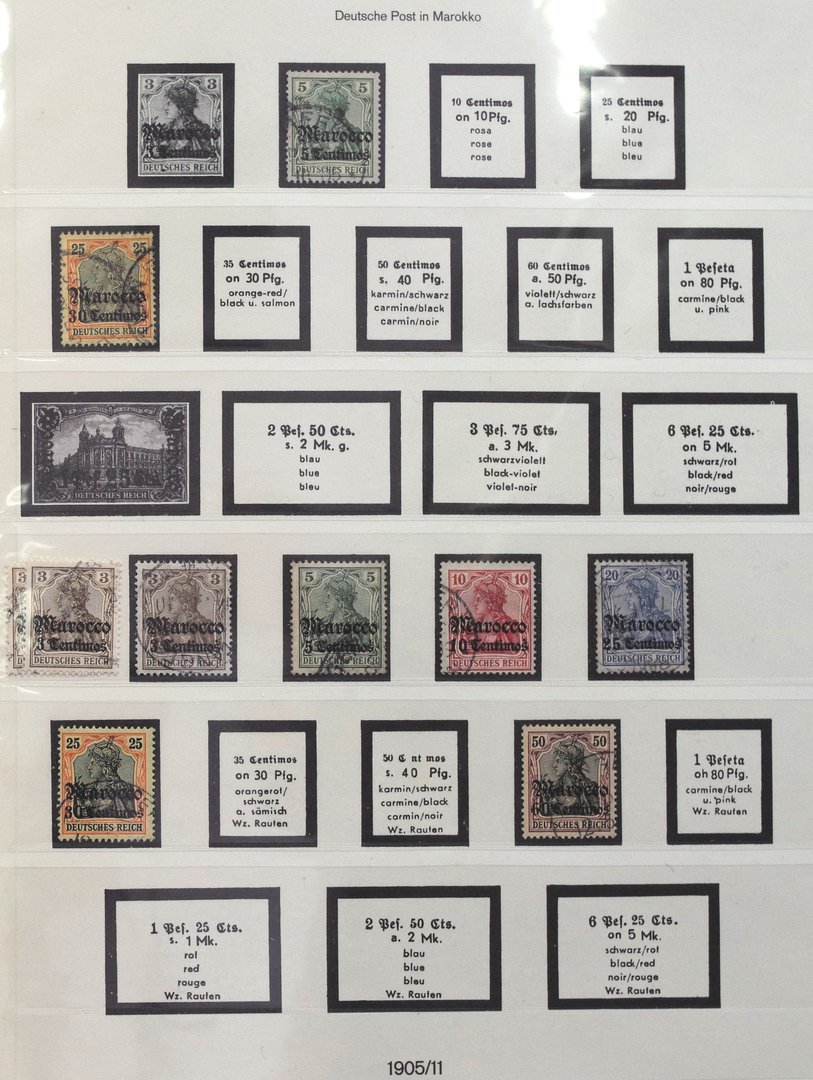 Deutsche Post in Marokko
3 3
Marocco
3 Centimos
DEUTSCHES REICH
5 5
Marocco
5 Centimos
DEUTSCHES REICH
10 Centimos
on 10 Pfg.
rosa
rose
rose
25 Centimos
s. 20 Pfg.
blau
blue
bleu
25 25
Marocco
30 Centimos
DEUTSCHES REICH
35 Centimos
on 30 Pfg.
orange-red/
black u. salmon
50 Centimos
s. 40 Pfg.
karmin/schwarz
carmine/black
carmin/noir
60 Centimos
a. 50 Pfg.
violett/schwarz
a. lachsfarben
1 Peseta
on 80 Pfg.
carmine/black
u. pink
DEUTSCHES REICH
2 Pes. 50 Cts.
s. 2 Mk. g.
blau
blue
bleu
3 Pes. 75 Cts.
a. 3 Mk.
schwarzviolett
black-violet
violet-noir
6 Pes. 25 Cts.
on 5 Mk.
schwarz/rot
black/red
noir/rouge
3
3 3
Marocco
3 Centimos
DEUTSCHES REICH
3 3
Marocco
3 Centimos
DEUTSCHES REICH
5 5
Marocco
5 Centimos
DEUTSCHES REICH
10 10
Marocco
10 Centimos
DEUTSCHES REICH
20 20
Marocco
25 Centimos
DEUTSCHES REICH
25 25
Marocco
30 Centimos
DEUTSCHES REICH
35 Centimos
on 30 Pfg.
orangerot/
schwarz
a. sämisch
Wz. Rauten
50 C nt mos
s. 40 Pfg.
karmin/schwarz
carmine/black
carmin/noir
Wz. Rauten
50 50
Marocco
60 Centimos
DEUTSCHES REICH
1 Peseta
oh 80 Pfg.
carmine/black
u. pink
Wz. Rauten
1 Pes. 25 Cts.
s. 1 Mk.
rot
red
rouge
Wz. Rauten
2 Pes. 50 Cts.
a. 2 Mk.
blau
blue
bleu
Wz. Rauten
6 Pes. 25 Cts.
on 5 Mk.
schwarz/rot
black/red
noir/rouge
Wz. Rauten
1905/11